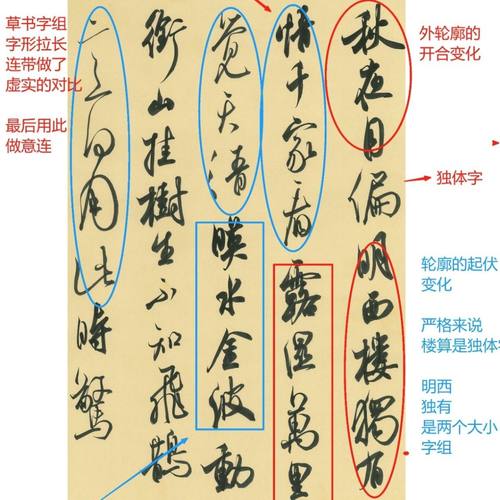 秋夜月偏明西楼獨有
情千家看露濕萬里
覺天清暎水金波動
銜山桂樹生不知飛鵲
意何用此時驚
草书字组
字形拉长
连带做了
虚实的对比
最后用此
做意连
外轮廓的
开合变化
独体字
轮廓的起伏
变化
严格来说
楼算是独体字
明西
独有
是两个大小
字组